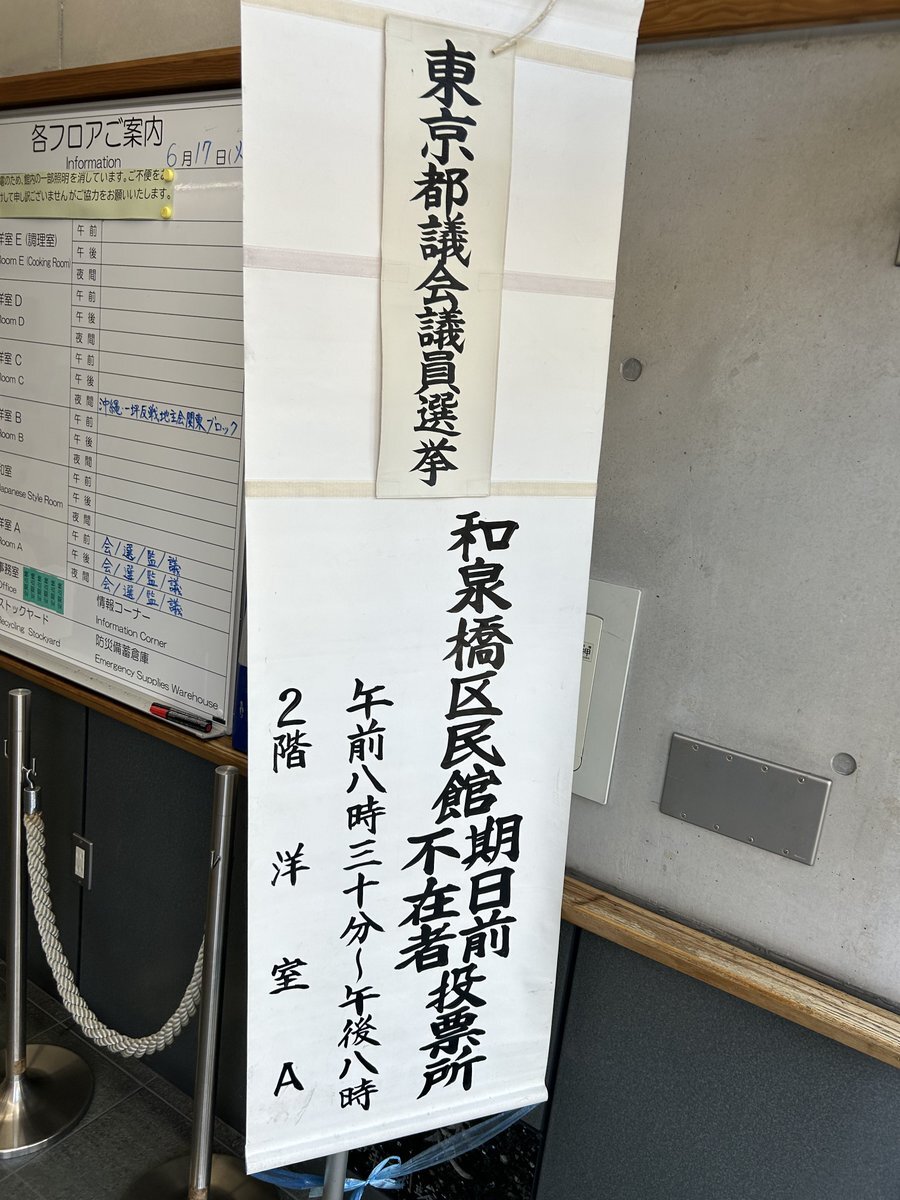 東京都議会議員選挙
和泉橋区民館
期日前
不在者
投票所
午前八時三十分～午後八時
2階 洋室A
各フロアご案内
Information
6月17日(火
電のため、館内の一部照明を消しています。ご不便をお
けして申し訳ございませんがご協力をお願いいたします。
洋室E(調理室)
Room E (Cooking Room)
午前
午後
夜間
洋室D
Room D
午前
午後
夜間
洋室C
Room C
午前
午後
夜間 沖縄・一坪反戦地主会関東ブロック
洋室B
Room B
午前
午後
夜間
和室
Japanese Style Room
午前
午後
夜間
洋室A
Room A
午前 会/選/監/議
午後 会/選/監/議
夜間 会/選/監/議
事務室
Office
情報コーナー
Information Corner
ストックヤード
Recycling Stockyard
防災備蓄倉庫
Emergency Supplies Warehouse